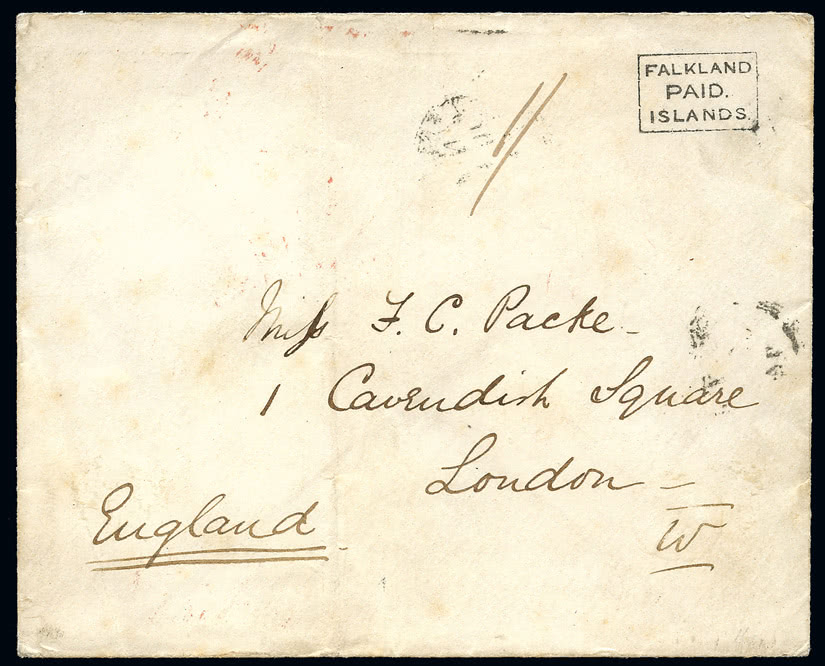 FALKLAND
PAID.
ISLANDS.
Miss F. C. Packe
1 Cavendish Square
London
W
England